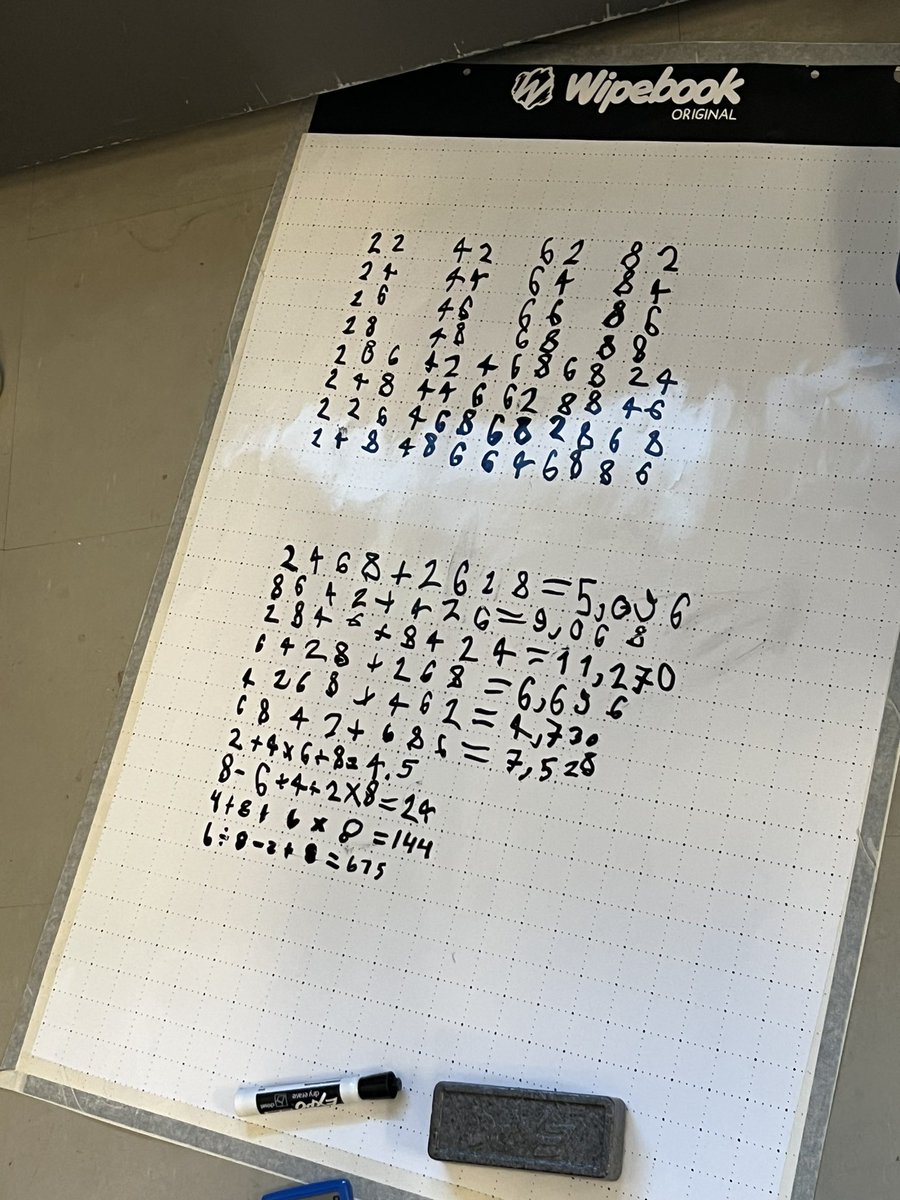 Wipebook
ORIGINAL
22 42 62 82
24 44 64 84
26 46 66 86
28 48 68 88
286 42 4 6 8 6 8 2 4
248 44 6 6 2 8 8 4 6
2 2 6 4 6 8 6 8 2 8 6 8
2 4 8 4 8 6 6 4 6 8 8 6
2468+2628=5,096
8642+426=9,068
2846+8424=11,270
6428+268=6,696
4268+462=4,730
6842+686=7,528
2+4×6÷8=4.5
8-6+4+2×8=24
4+8+6×8=144
6÷8-2+8=675
EXPO
dry erase